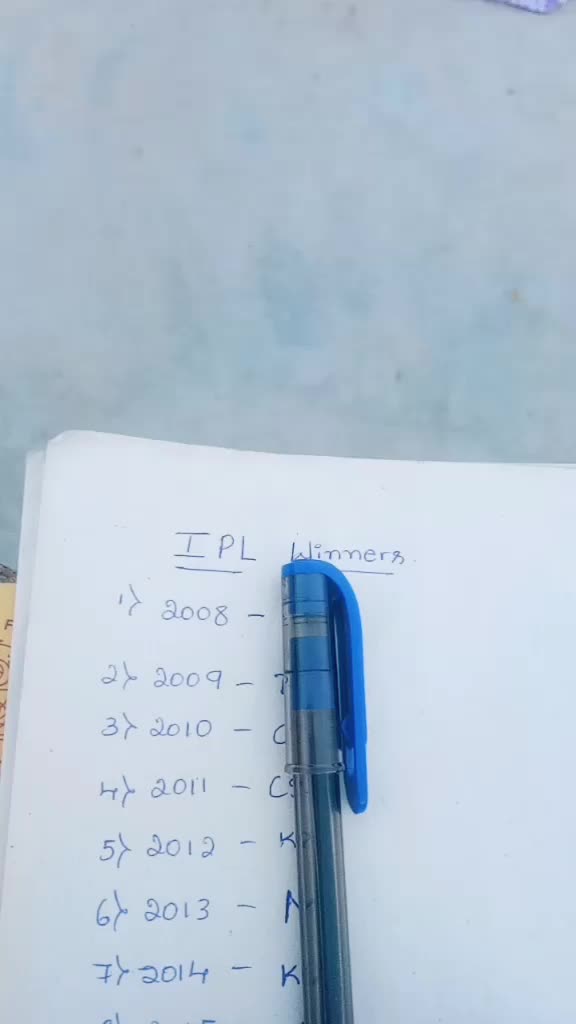 IPL Winners.
1) 2008 -
2) 2009 -
3) 2010 - C
4) 2011 - CS
5) 2012 - K
6) 2013 -
7) 2014 - K